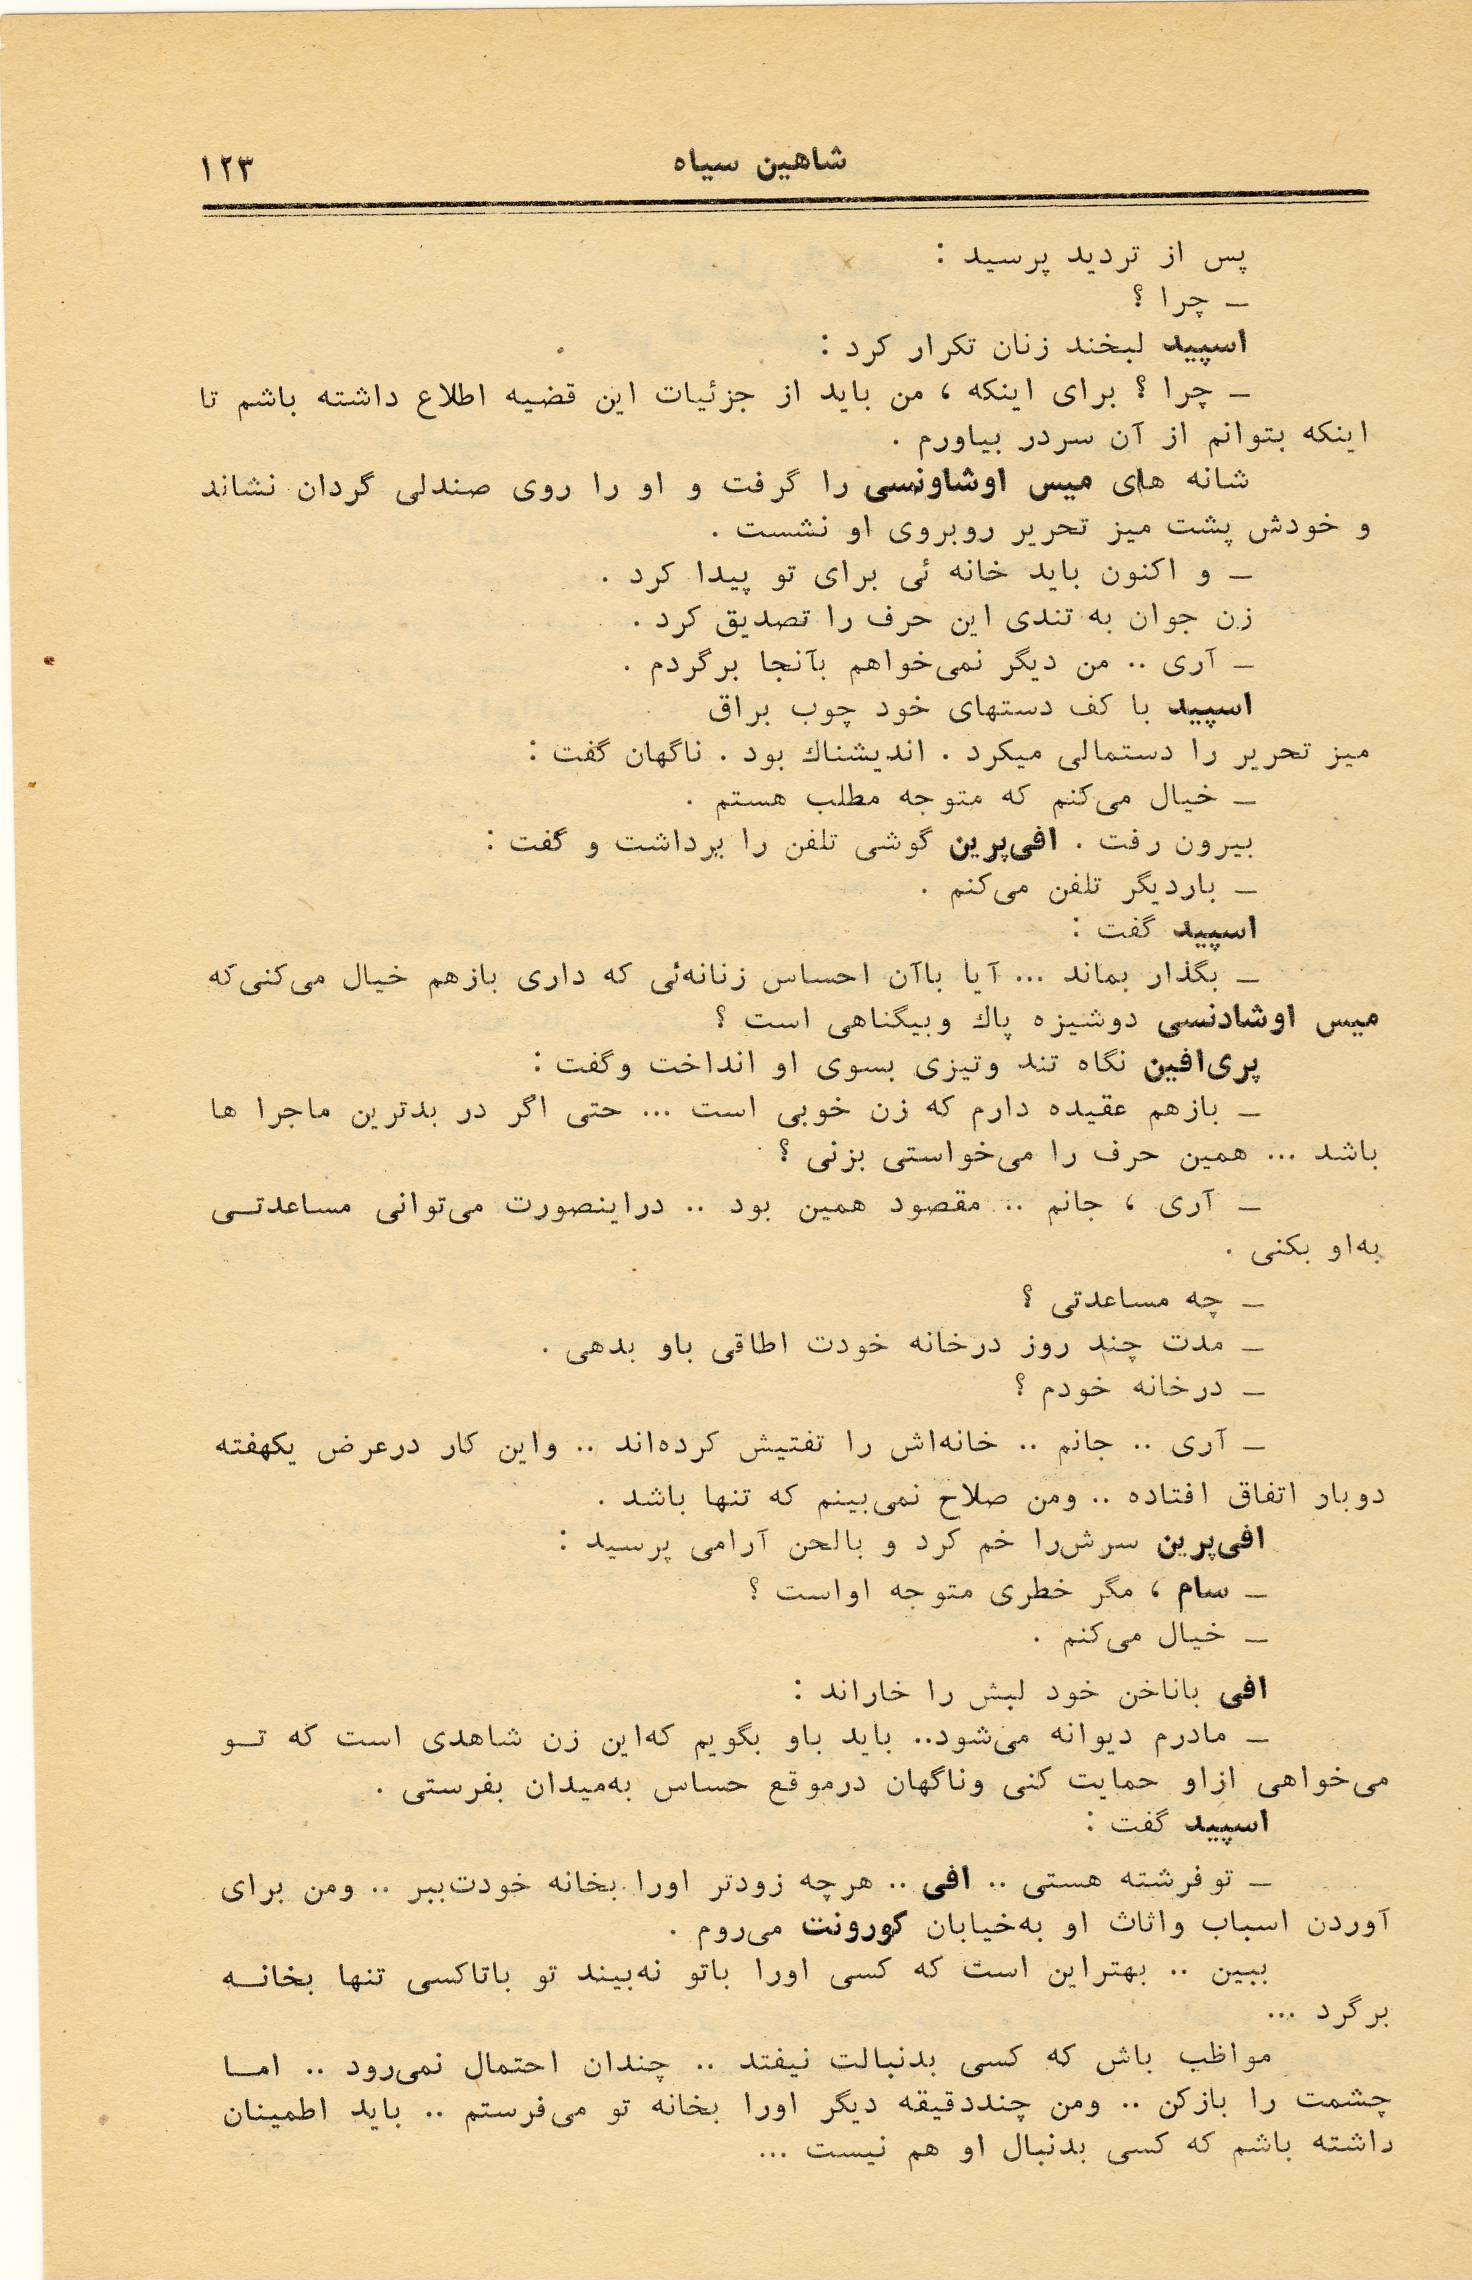 شاهین سیاه
۱۲۳
پس از تردید پرسید :
ــ چرا ؟
اسپید لبخند زنان تکرار کرد :
ــ چرا ؟ برای اینکه ، من باید از جزئیات این قضیه اطلاع داشته باشم تا
اینکه بتوانم از آن سردر بیاورم .
شانه های میس اوشاونسی را گرفت و او را روی صندلی گردان نشاند
و خودش پشت میز تحریر روبروی او نشست .
ــ و اکنون باید خانه ئی برای تو پیدا کرد .
زن جوان به تندی این حرف را تصدیق کرد .
ــ آری .. من دیگر نمی‌خواهم بآنجا برگردم .
اسپید با کف دستهای خود چوب براق
میز تحریر را دستمالی میکرد . اندیشناك بود . ناگهان گفت :
ــ خیال می‌کنم که متوجه مطلب هستم .
بیرون رفت . افی‌پرین گوشی تلفن را برداشت و گفت :
ــ باردیگر تلفن می‌کنم .
اسپید گفت :
ــ بگذار بماند ... آیا باآن احساس زنانه‌ئی که داری بازهم خیال می‌کنی‌که
میس اوشادنسی دوشیزه پاك وبیگناهی است ؟
پری‌افین نگاه تند وتیزی بسوی او انداخت وگفت :
ــ بازهم عقیده دارم که زن خوبی است ... حتی اگر در بدترین ماجرا ها
باشد ... همین حرف را می‌خواستی بزنی ؟
ــ آری ، جانم .. مقصود همین بود .. دراینصورت می‌توانی مساعدتــی
به‌او بکنی .
ــ چه مساعدتی ؟
ــ مدت چند روز درخانه خودت اطاقی باو بدهی .
ــ درخانه خودم ؟
ــ آری .. جانم .. خانه‌اش را تفتیش کرده‌اند .. واین کار درعرض یکهفته
دوبار اتفاق افتاده .. ومن صلاح نمی‌بینم که تنها باشد .
افی‌پرین سرش‌را خم کرد و بالحن آرامی پرسید :
ــ سام ، مگر خطری متوجه اواست ؟
ــ خیال می‌کنم .
افی باناخن خود لبش را خاراند :
ــ مادرم دیوانه می‌شود.. باید باو بگویم که‌این زن شاهدی است که تــو
می‌خواهی ازاو حمایت کنی وناگهان درموقع حساس به‌میدان بفرستی .
اسپید گفت :
ــ توفرشته هستی .. افی .. هرچه زودتر اورا بخانه خودت‌ببر .. ومن برای
آوردن اسباب واثاث او به‌خیابان کورونت می‌روم .
ببین .. بهتراین است که کسی اورا باتو نه‌بیند تو باتاکسی تنها بخانــه
برگرد ...
مواظب باش که کسی بدنبالت نیفتد .. چندان احتمال نمی‌رود .. امــا
چشمت را بازکن .. ومن چنددقیقه دیگر اورا بخانه تو می‌فرستم .. باید اطمینان
داشته باشم که کسی بدنبال او هم نیست ...